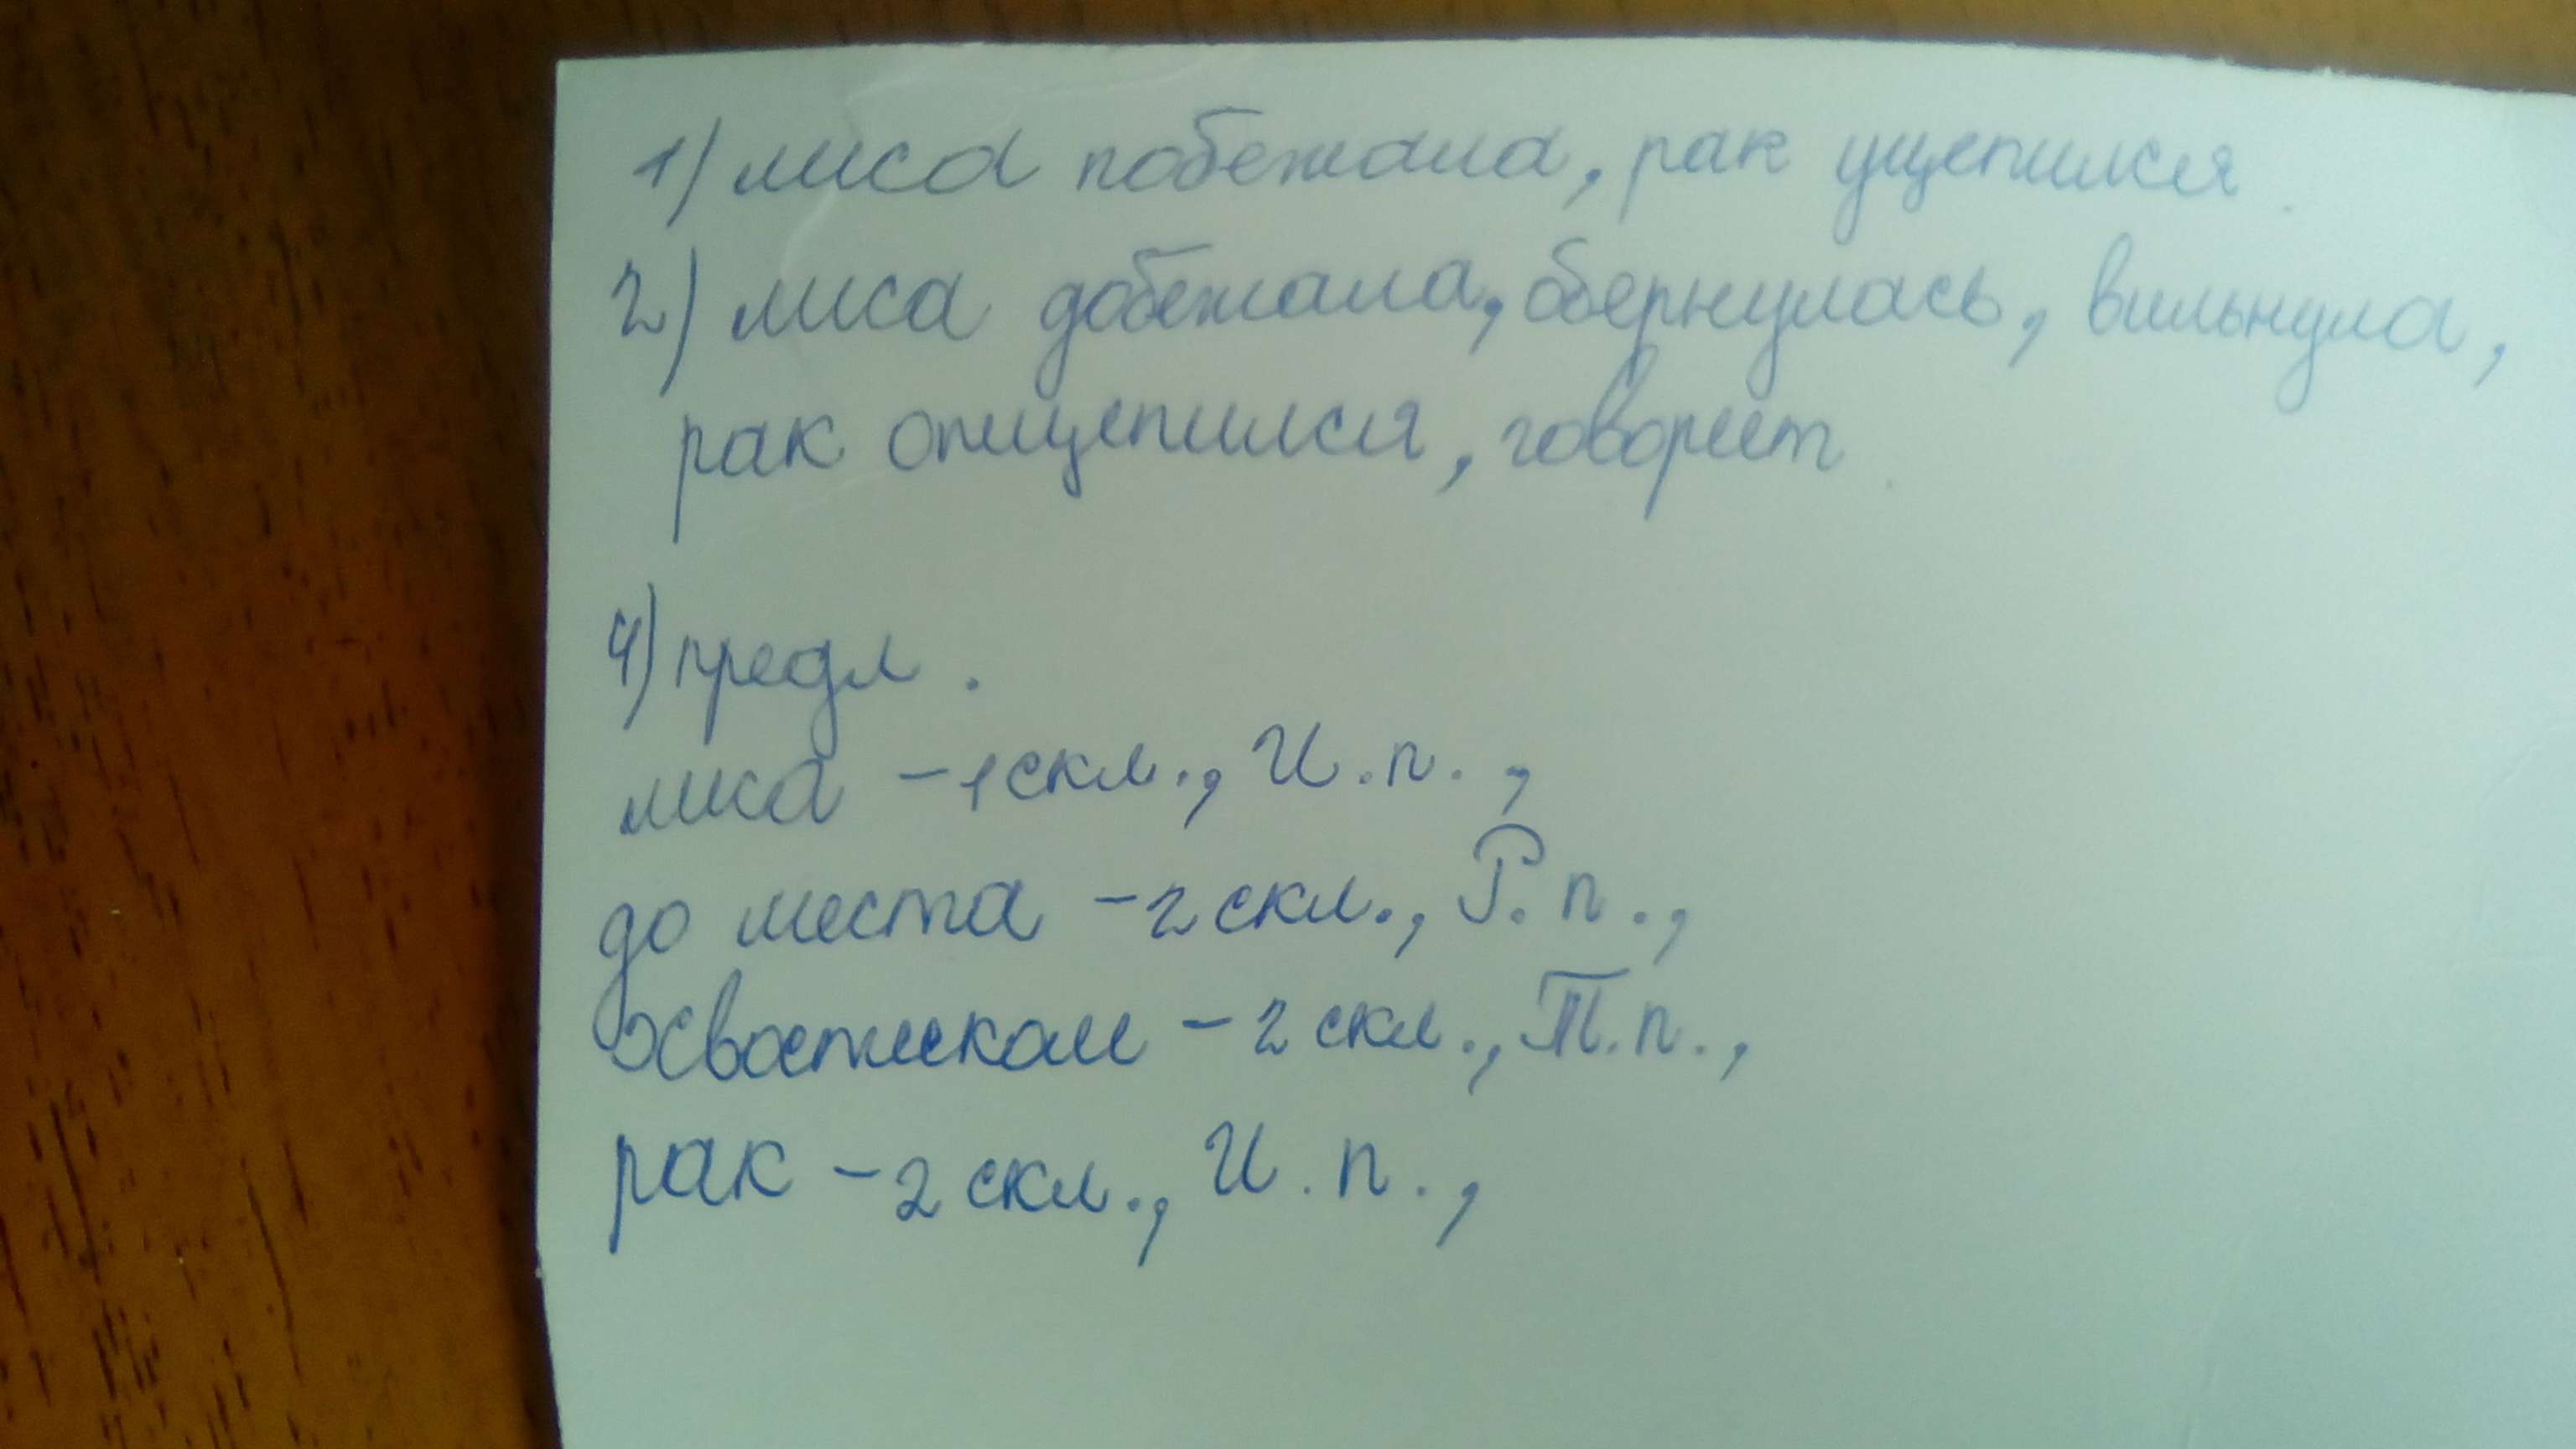 1) лиса побежала, рак уцепился.
2) лиса добежала, обернулась, вильнула,
рак отцепился, говорит.
4) предл.
лиса – 1 скл., И.п.,
до места – 2 скл., Р.п.,
хвостиком – 2 скл., Т.п.,
рак – 2 скл., И.п.,